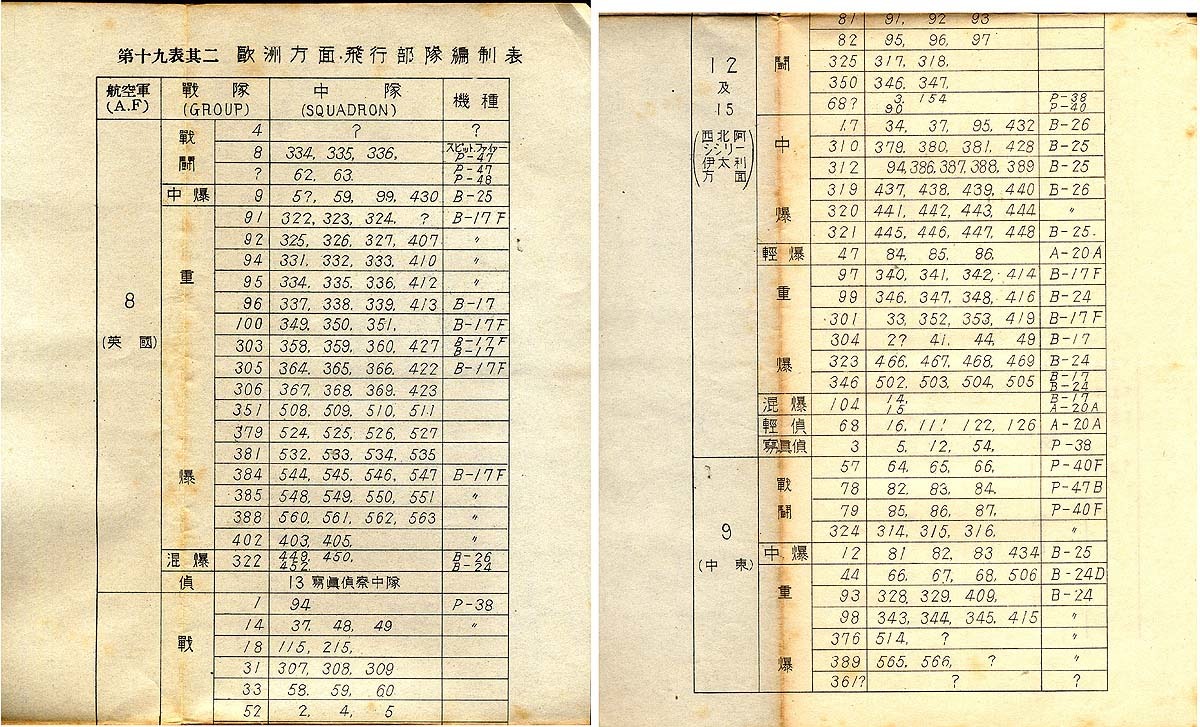 第十九表其二 歐洲方面飛行部隊編制表
航空軍 (A.F) 戰隊 (GROUP) 中隊 (SQUADRON) 機種
8 (英國)
戰闘 4 ? ?
8 334, 335, 336, スピットファイヤー P-47
? 62, 63. P-47 P-48
中爆 9 5?, 59, 99, 430 B-25
重爆 91 322, 323, 324, ? B-17F
92 325, 326, 327, 407 〃
94 331, 332, 333, 410 〃
95 334, 335, 336, 412 〃
96 337, 338, 339, 413 B-17
100 349, 350, 351, B-17F
303 358, 359, 360, 427 B-17F B-17
305 364, 365, 366, 422 B-17F
306 367, 368, 369, 423
351 508, 509, 510, 511
379 524, 525, 526, 527
381 532, 533, 534, 535
384 544, 545, 546, 547 B-17F
385 548, 549, 550, 551 〃
388 560, 561, 562, 563 〃
402 403, 405,
混爆 322 449, 450, 452, B-26 B-24
偵 13寫眞偵察中隊
戰 1 94 P-38
14 37, 48, 49 〃
18 115, 215,
31 307, 308, 309
33 58, 59, 60
52 2, 4, 5
12及15
(西北阿 シシリー 伊太利 方面)
闘 81 91, 92 93
82 95, 96, 97
325 317, 318,
350 346, 347,
68? 3, 154 90 P-38 P-40
中爆 17 34, 37, 95, 432 B-26
310 379, 380, 381, 428 B-25
312 94, 386, 387, 388, 389 B-25
319 437, 438, 439, 440 B-26
320 441, 442, 443, 444 〃
321 445, 446, 447, 448 B-25
輕爆 47 84, 85, 86, A-20A
重爆 97 340, 341, 342, 414 B-17F
99 346, 347, 348, 416 B-24
301 33, 352, 353, 419 B-17F
304 2? 41, 44, 49 B-17
323 466, 467, 468, 469 B-24
346 502, 503, 504, 505 B-17 B-24
混爆 104 14, 15 B-17 A-20A
輕偵 68 16, 111, 122, 126 A-20A
寫眞偵 3 5, 12, 54, P-38
9 (中東)
戰闘 57 64, 65, 66, P-40F
78 82, 83, 84, P-47B
79 85, 86, 87, P-40F
324 314, 315, 316, 〃
中爆 12 81 82, 83 434 B-25
重爆 44 66, 67, 68, 506 B-24D
93 328, 329, 409, B-24
98 343, 344, 345, 415 〃
376 514, ? 〃
389 565, 566, ? 〃
361? ? ?